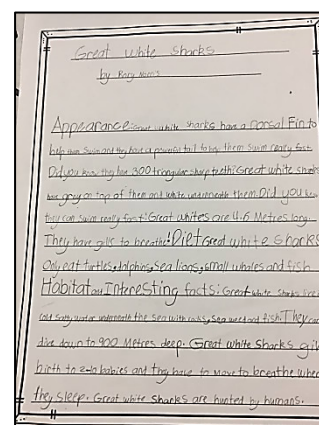 Great white sharks
by Rory Norris
Appearance: Great white sharks have a Dorsal Fin to
help them Swim and they have a powerful tail to help them swim really fast.
Did you know they have 300 triangular sharp teeth! Great white sharks
have grey on top of them and white underneath them. Did you
they can swim really fast! Great whites are 4-6 Metres long.
They have gills to breathe! Diet Great white sharks
Only eat turtles, dolphins, Sea lions, small whales and fish.
Habitat and Interesting facts: Great white Sharks
cold Salty water underneath the Sea with rocks, Sea weed and fish. They can
dive down to 900 Metres deep. Great white Sharks give
birth to 2-10 babies and they have to Move to breathe when
they sleep. Great white Sharks are hunted by humans.